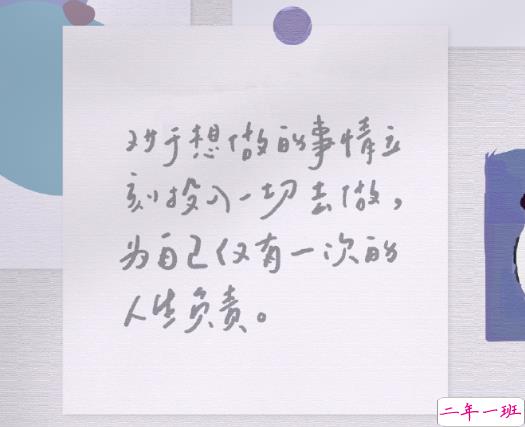 对于想做的事情立
刻投入一切去做，
为自己仅有一次的
人生负责。
二年一班